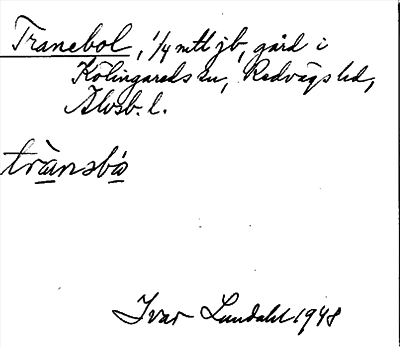 Tranebol, 1/4 mtl jb, gård i
Kölingareds sn, Redvägs hd,
Älvsb. l.
trànsbó
Ivar Lundahl 1948